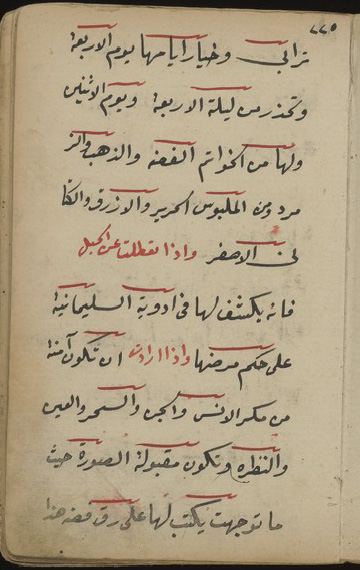 ٢٢٥
ترابي وخيار ايامها يوم الاربعة
وتحذر من ليلة الاربعة ويوم الاثنين
ولها من الخواتم الفضة والذهب والز
مرد ومن الملبوس الحرير والازرق والكتا
ن الاصفر واذا تعطلت عن الحبل
فانه يكشف لها في ادوية السليمانية
على حكم مرضها واذا ارادت ان تكون آمنة
من مكر الانس والجن والسحر والعين
والنظرة وتكون مقبولة الصورة حيث
ما توجهت يكتب لها على رق فضة هذا